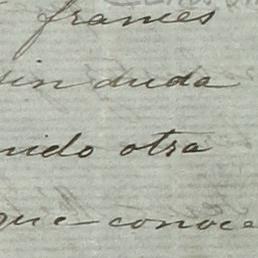 frances
sin duda
nido otra
que conoce